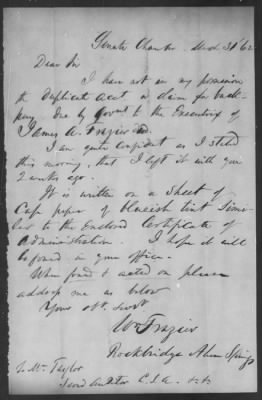 Senate Chamber Mch 31 '62
Dear Sir
I have not in my possession
the Duplicate acct & claim for back-
pay due by Govmt to the Executrix of
James A. Frazier
I am quite confident as I stated
this morning, that I left it with you
2 weeks ago.
It is written on a sheet of
Cap paper of blueish tint simi-
lar to the Enclosed Certificate of
Administration. I hope it will
be found in your office.
When found & acted on please
address me as below
Your obt. servt
Wm Frazier
Rockbridge Alum Springs
J. Wm Taylor
Second Auditor C.S.A.